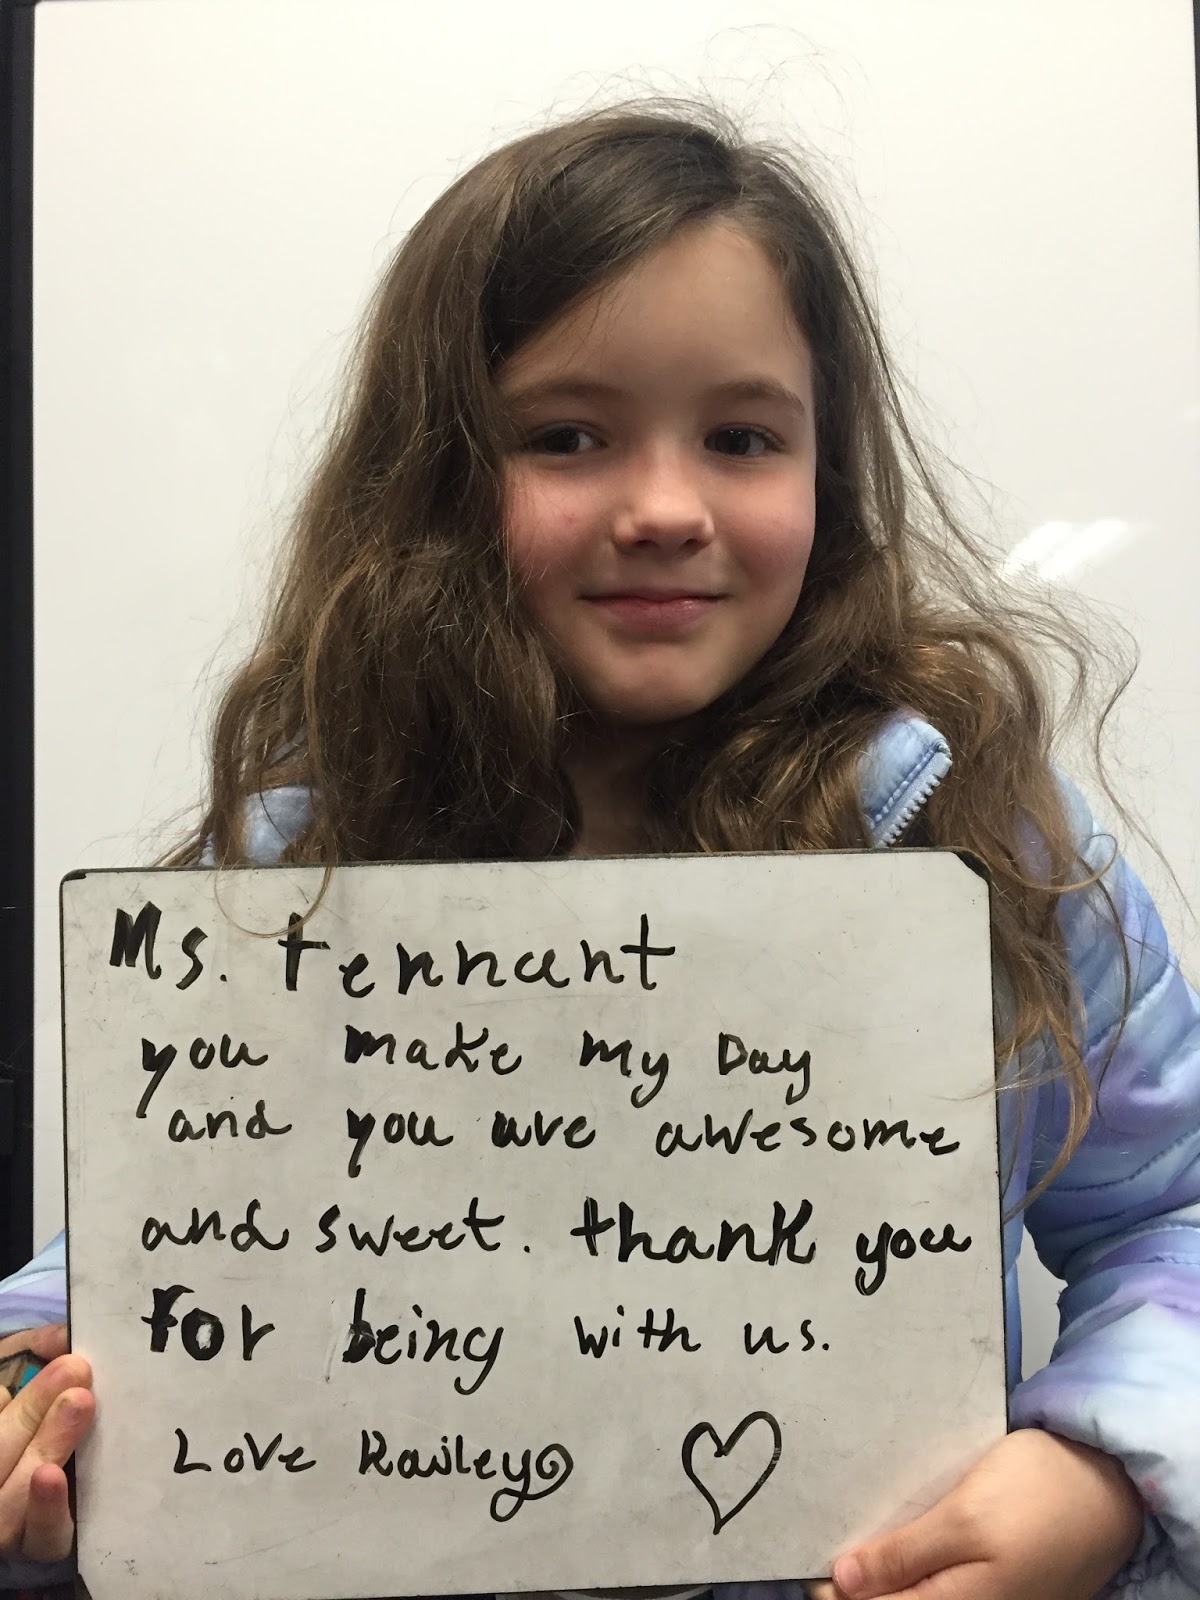 Ms. Tennant
you make my Day
and you are awesome
and sweet. thank you
For being with us.
Love Railey